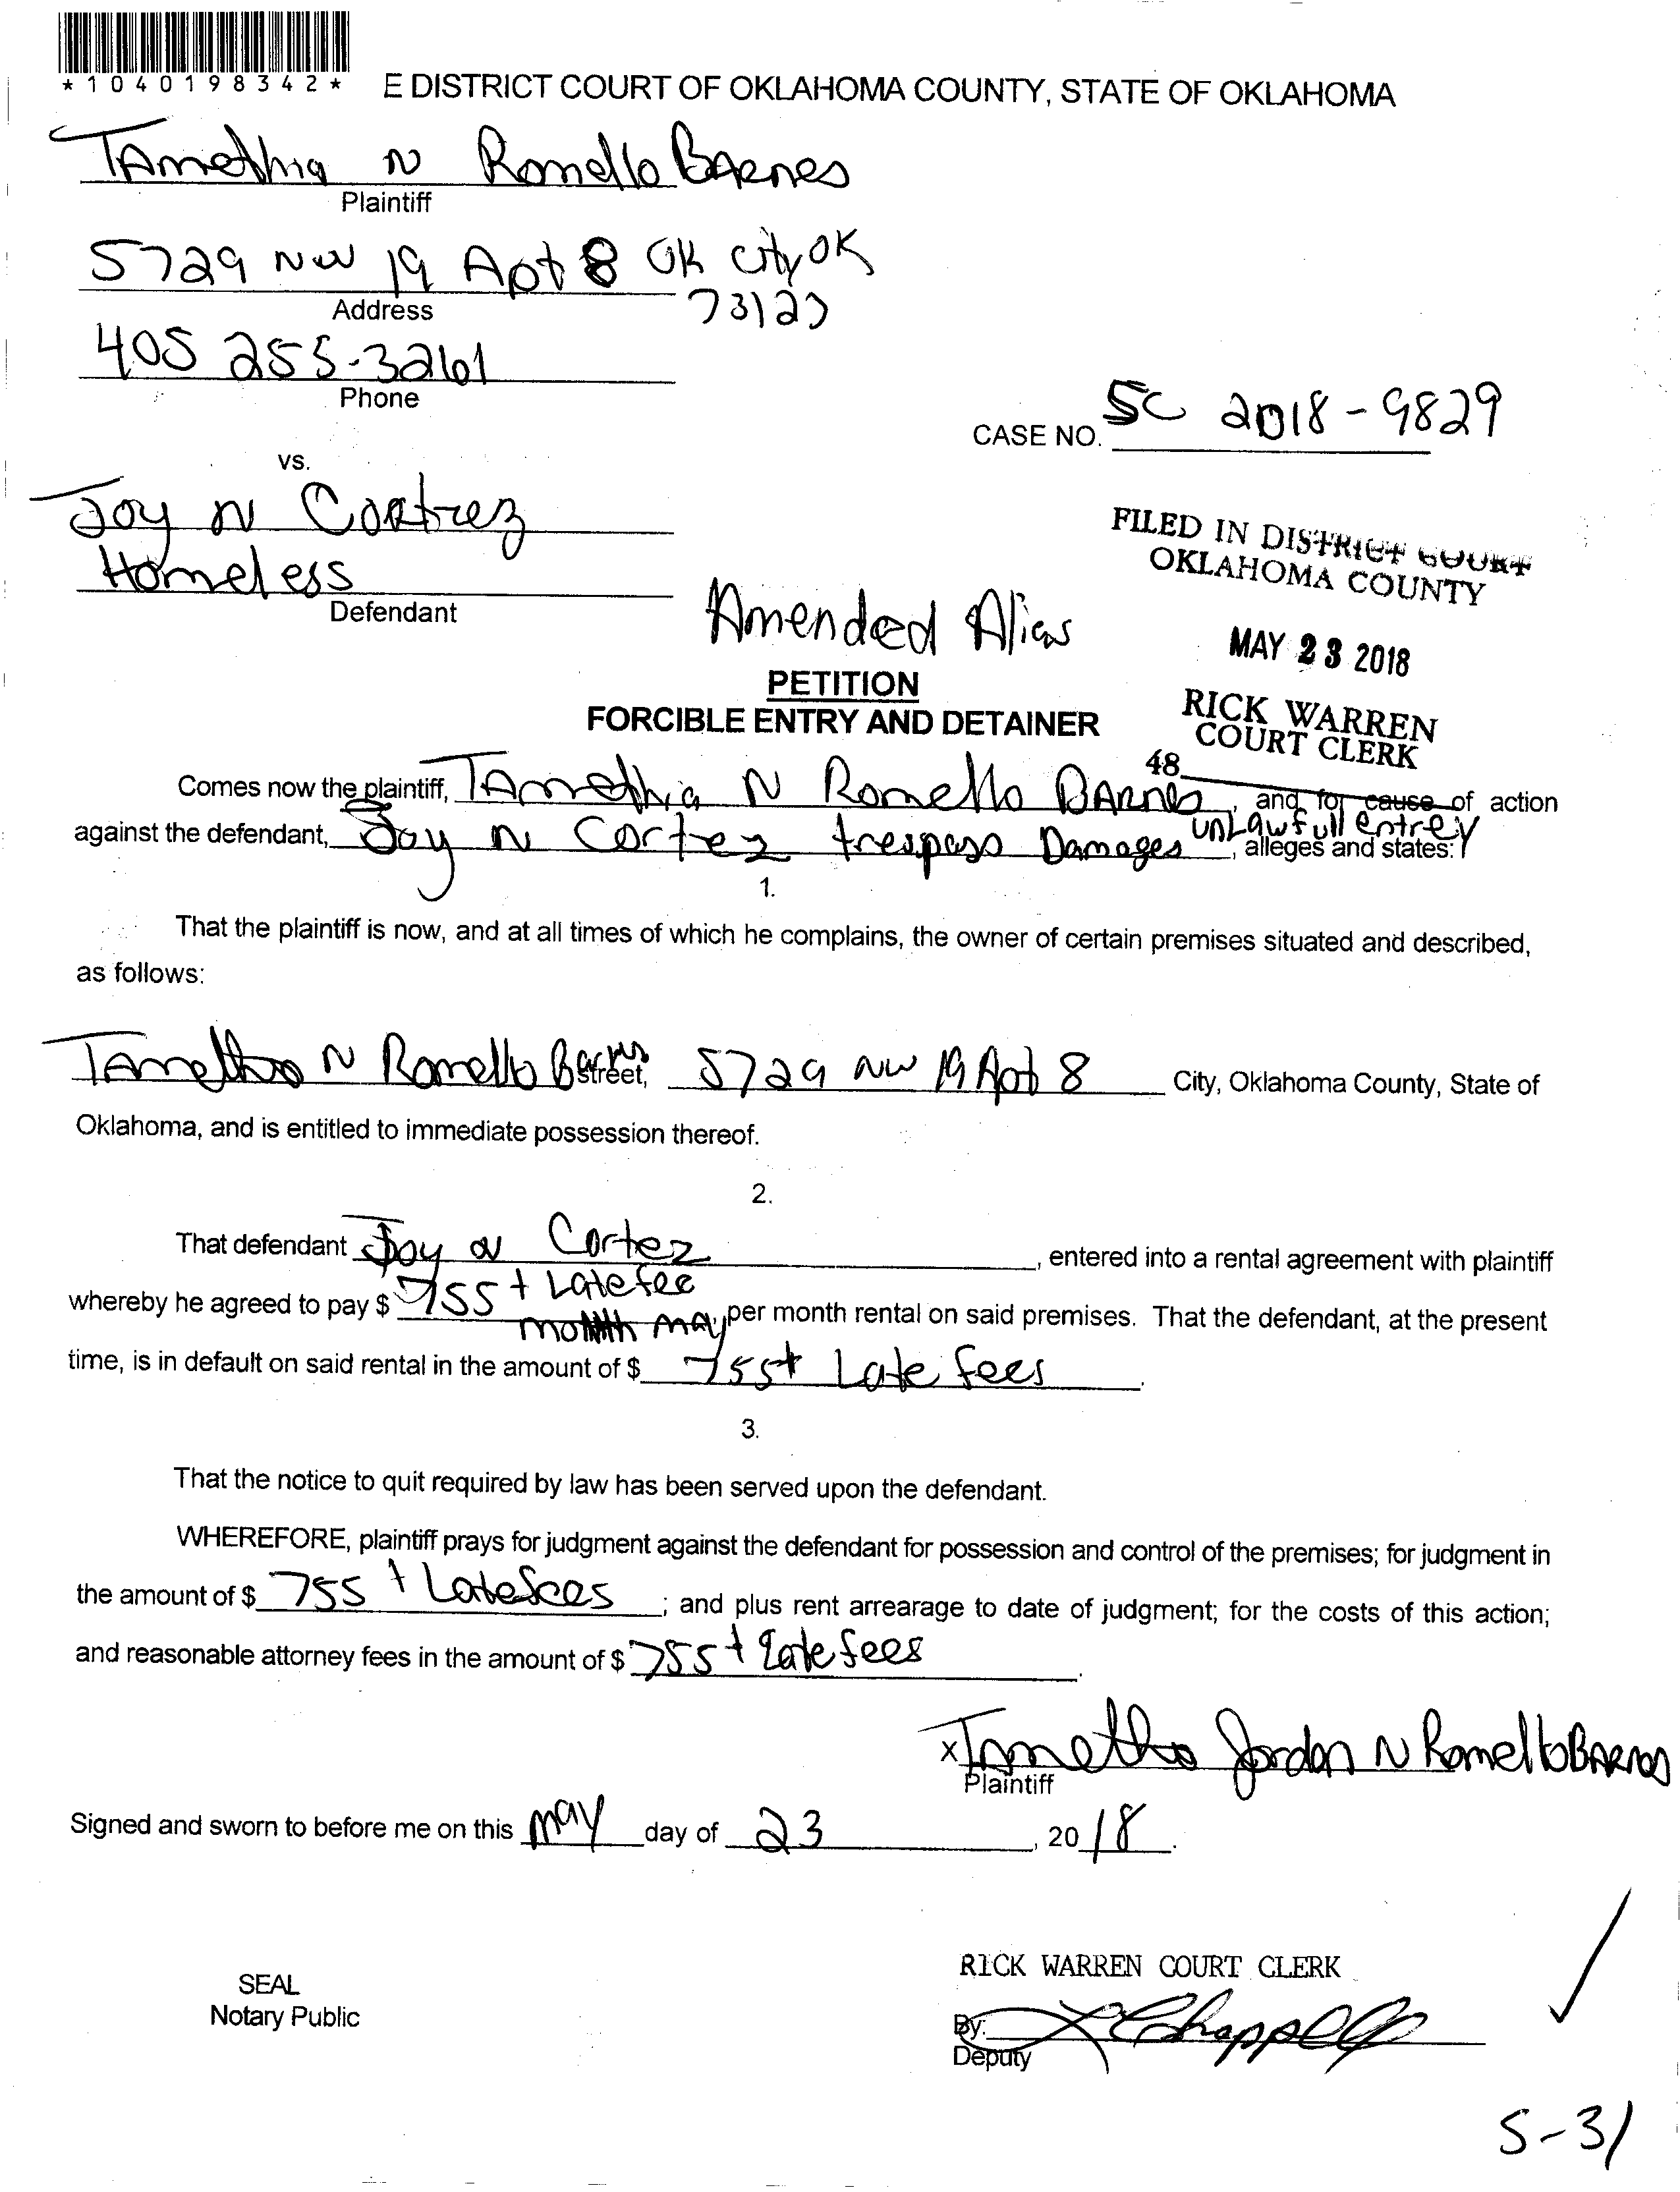 *1040198342*
E DISTRICT COURT OF OKLAHOMA COUNTY, STATE OF OKLAHOMA
TAmethia N Romello BARNes
Plaintiff
5729 NW 19 Apt 8 OK city OK
Address
73127
405 255-3261
Phone
CASE NO. SC 2018-9829
vs.
Joy N Cortrez
Homeless
Defendant
FILED IN DISTRICT COURT
OKLAHOMA COUNTY
MAY 23 2018
RICK WARREN
COURT CLERK
48
Amended Alias
PETITION
FORCIBLE ENTRY AND DETAINER
Comes now the plaintiff, TAmethia N Romello BARNes, and for cause of action
unLawfull entrey
against the defendant, Joy N Cortez trespass Damages, alleges and states:
1.
That the plaintiff is now, and at all times of which he complains, the owner of certain premises situated and described,
as follows:
TAmetha N Romello Barnes Street, 5729 NW 19 Apt 8 City, Oklahoma County, State of
Oklahoma, and is entitled to immediate possession thereof.
2.
That defendant Joy N Cortez, entered into a rental agreement with plaintiff
whereby he agreed to pay $ 755 + Late fee month may per month rental on said premises. That the defendant, at the present
time, is in default on said rental in the amount of $ 755+ Late fees.
3.
That the notice to quit required by law has been served upon the defendant.
WHEREFORE, plaintiff prays for judgment against the defendant for possession and control of the premises; for judgment in
the amount of $ 755 + Latefees; and plus rent arrearage to date of judgment; for the costs of this action;
and reasonable attorney fees in the amount of $ 755 + Late fees.
x Tametha Jordan N Romello BARNes
Plaintiff
Signed and sworn to before me on this may day of 23, 2018.
SEAL
Notary Public
RICK WARREN COURT CLERK
By: Chappell
Deputy
5-31